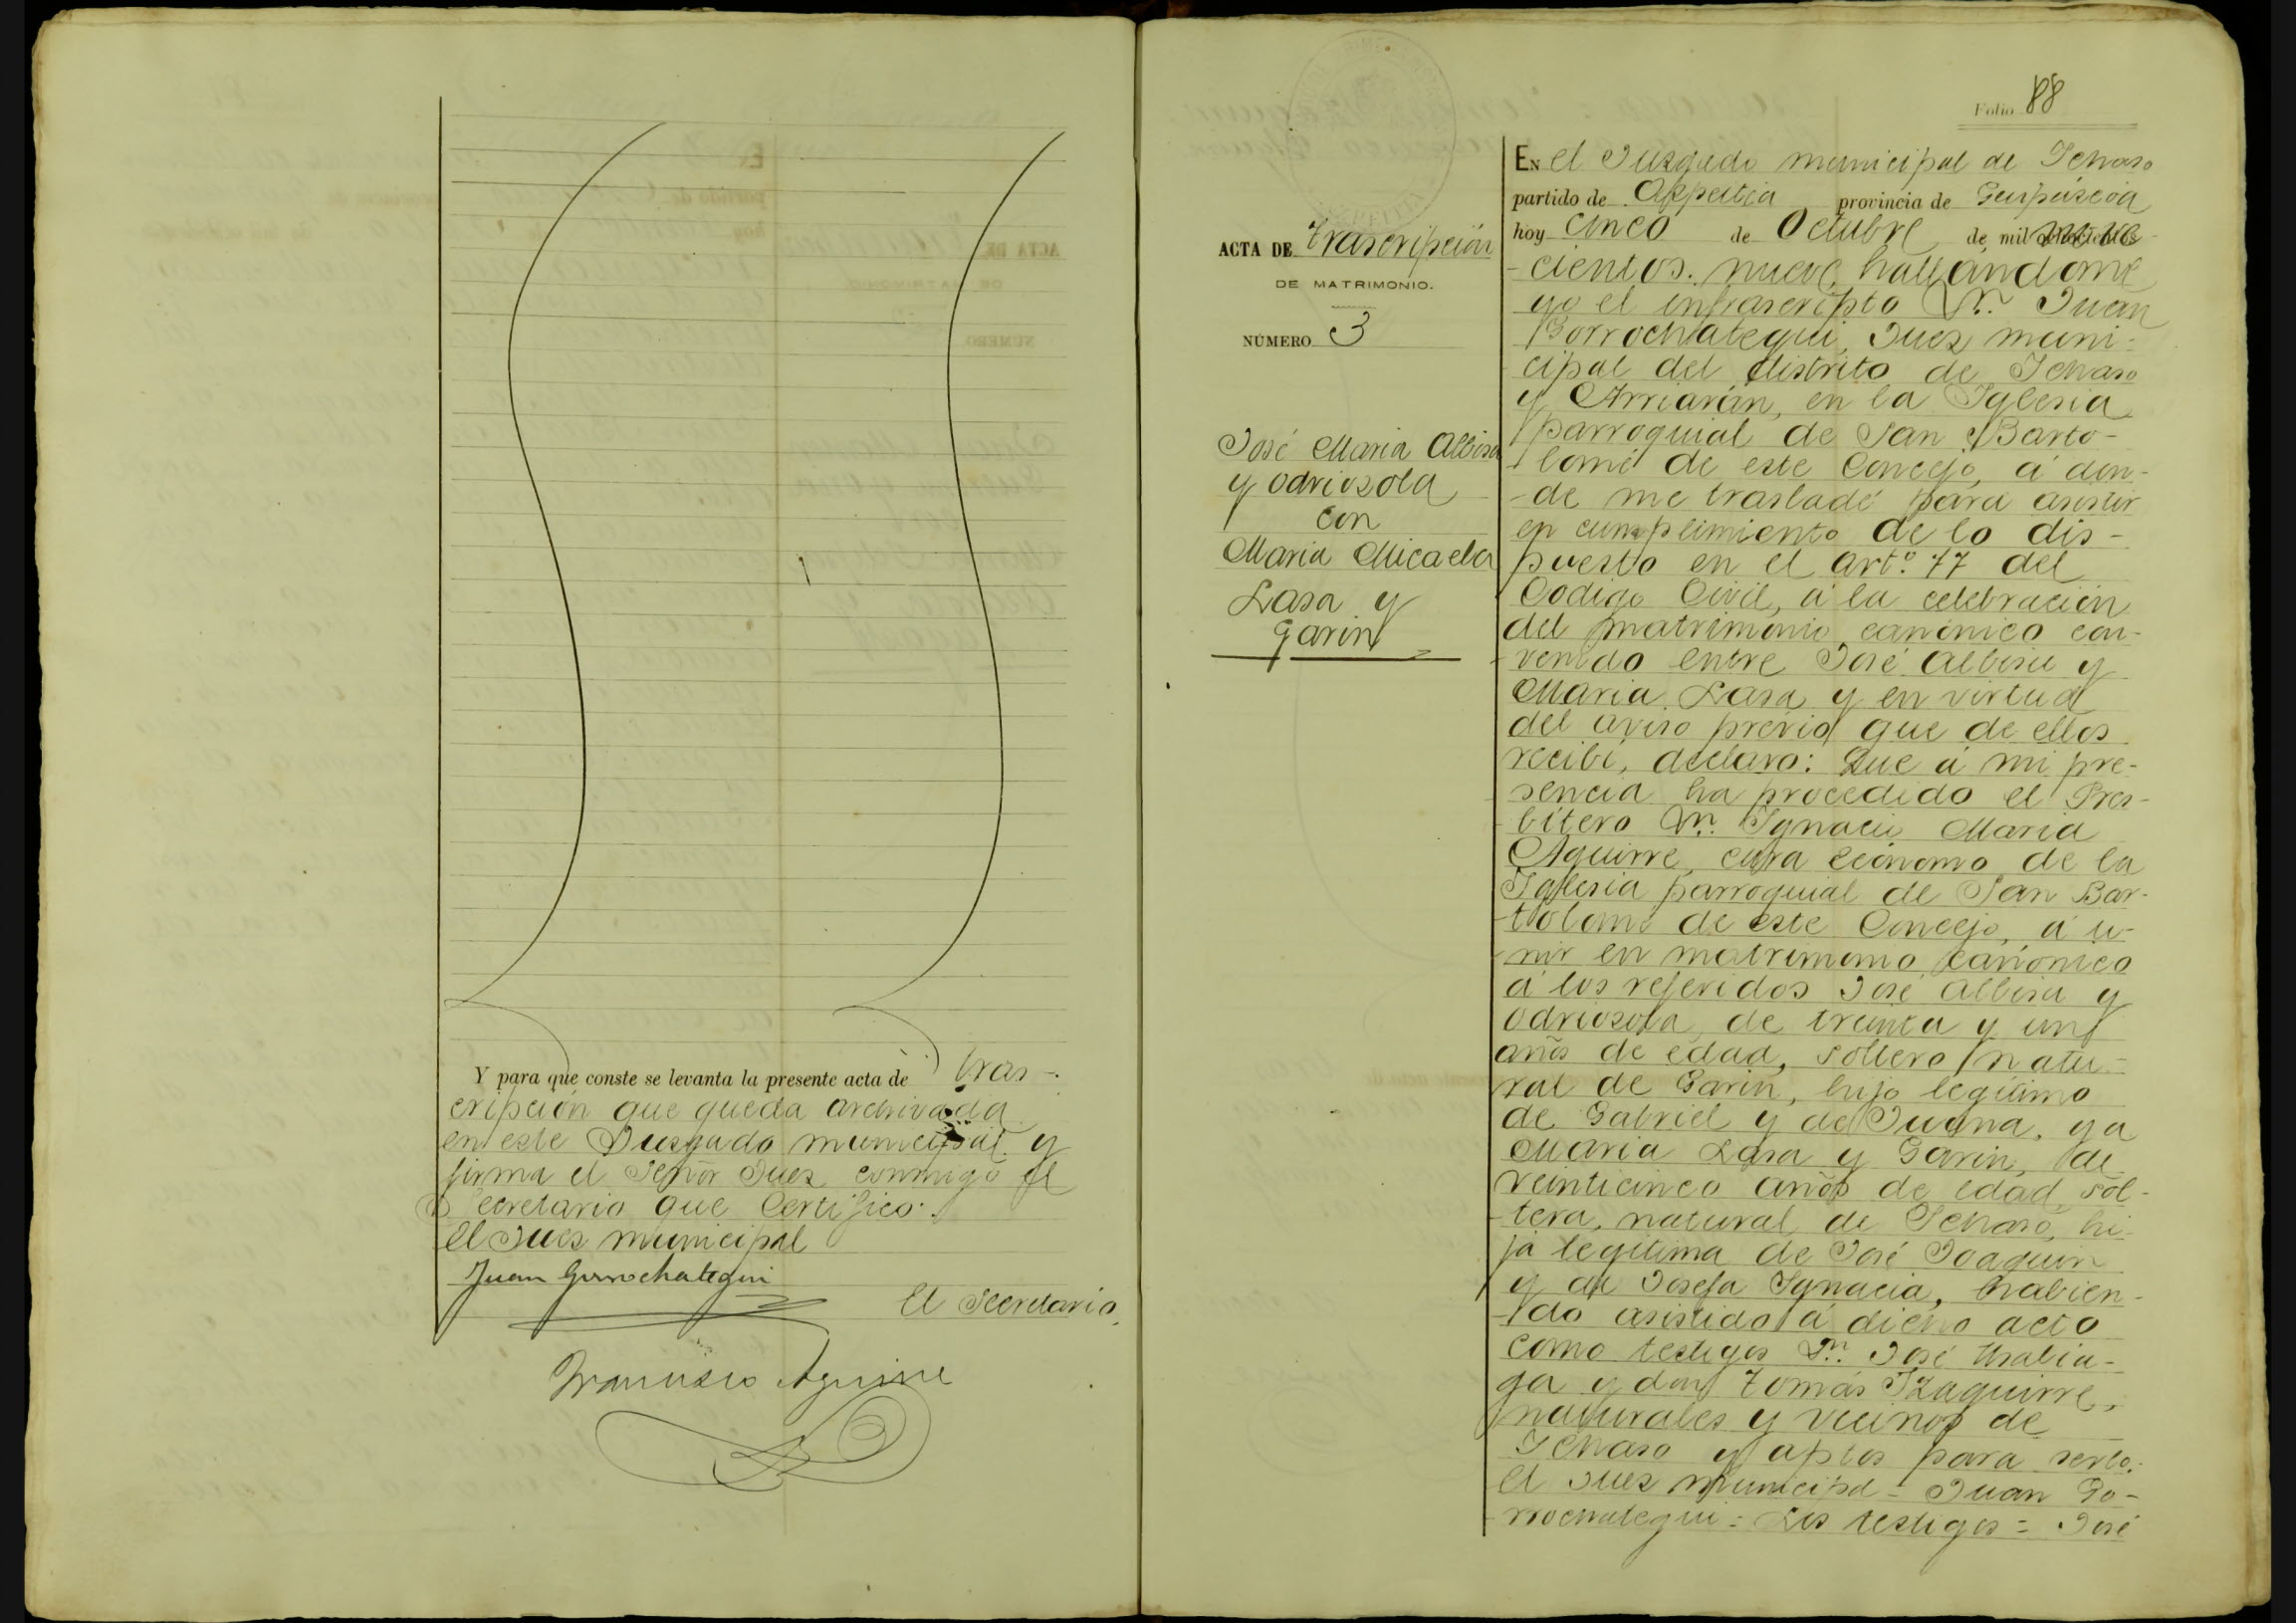 Y para que conste se levanta la presente acta de tras-
cripción que queda archivada
en este Juzgado municipal y
firma el Señor Juez conmigo el
Secretario que Certifico.
El Juez municipal
Juan Gorrochategui
El Secretario.
Francisco Aguirre
Folio 88
ACTA DE trascripción
DE MATRIMONIO.
NÚMERO 3
José Maria Albisu
y Odriozola
con
Maria Micaela
Lasa y
Garin
EN el Juzgado municipal de Ichaso
partido de Azpeitia provincia de Guipúzcoa
hoy cinco de Octubre de mil nove
cientos nueve, hallándome
yo el infrascripto Dn. Juan
Gorrochategui, Juez muni-
cipal del distrito de Ichaso
y Arriarán, en la Iglesia
parroquial de San Barto-
lomé de este Concejo, á don-
de me trasladé para asistir
en cumplimiento de lo dis-
puesto en el Artº. 77 del
Codigo Civil, á la celebración
del matrimonio canónico con-
venido entre José Albisu y
Maria Lasa y en virtud
del aviso previo que de ellos
recibí, declaro: Que á mi pre-
sencia ha procedido el Pres-
bítero Dn. Ignacio Maria
Aguirre, cura ecónomo de la
Iglesia parroquial de San Bar-
tolomé de este Concejo, á u-
nir en matrimonio canónico
á los referidos José Albisu y
Odriozola, de treinta y un
años de edad, soltero, natu-
ral de Garin, hijo legítimo
de Gabriel y de Juana, y a
Maria Lasa y Garin, de
veinticinco años de edad, sol-
tera, natural de Ichaso, hi-
ja legítima de José Joaquin
y de Josefa Ignacia, habien-
do asistido á dicho acto
como testigos Dn. José Urabia-
ga y don Tomás Izaguirre,
naturales y vecinos de
Ichaso y aptos para serlo.
El Juez municipal = Juan Go-
rrochategui = Los testigos = José